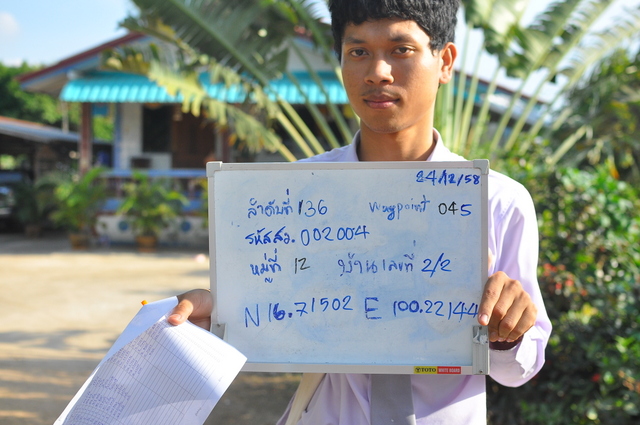 24/12/58
ลำดับที่ 136 waypoint 045
รหัสสง. 002004
หมู่ที่ 12 บ้านเลขที่ 2/2
N 16.71502 E 100.22144
TOTO WHITE BOARD